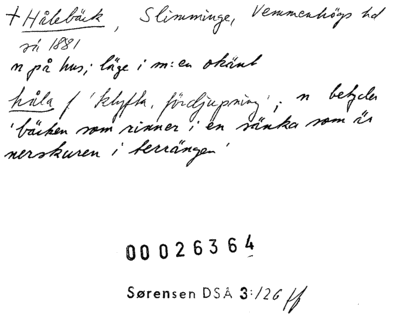 + Hålebäck, Slimminge, Vemmenhögs hd
så 1881
n på hus; läge i m:en okänt
håla f 'klyfta, fördjupning'; n betyder
'bäcken som rinner i en sänka som är
nerskuren i terrängen'
00026364
Sørensen DSÅ 3:/26 ff